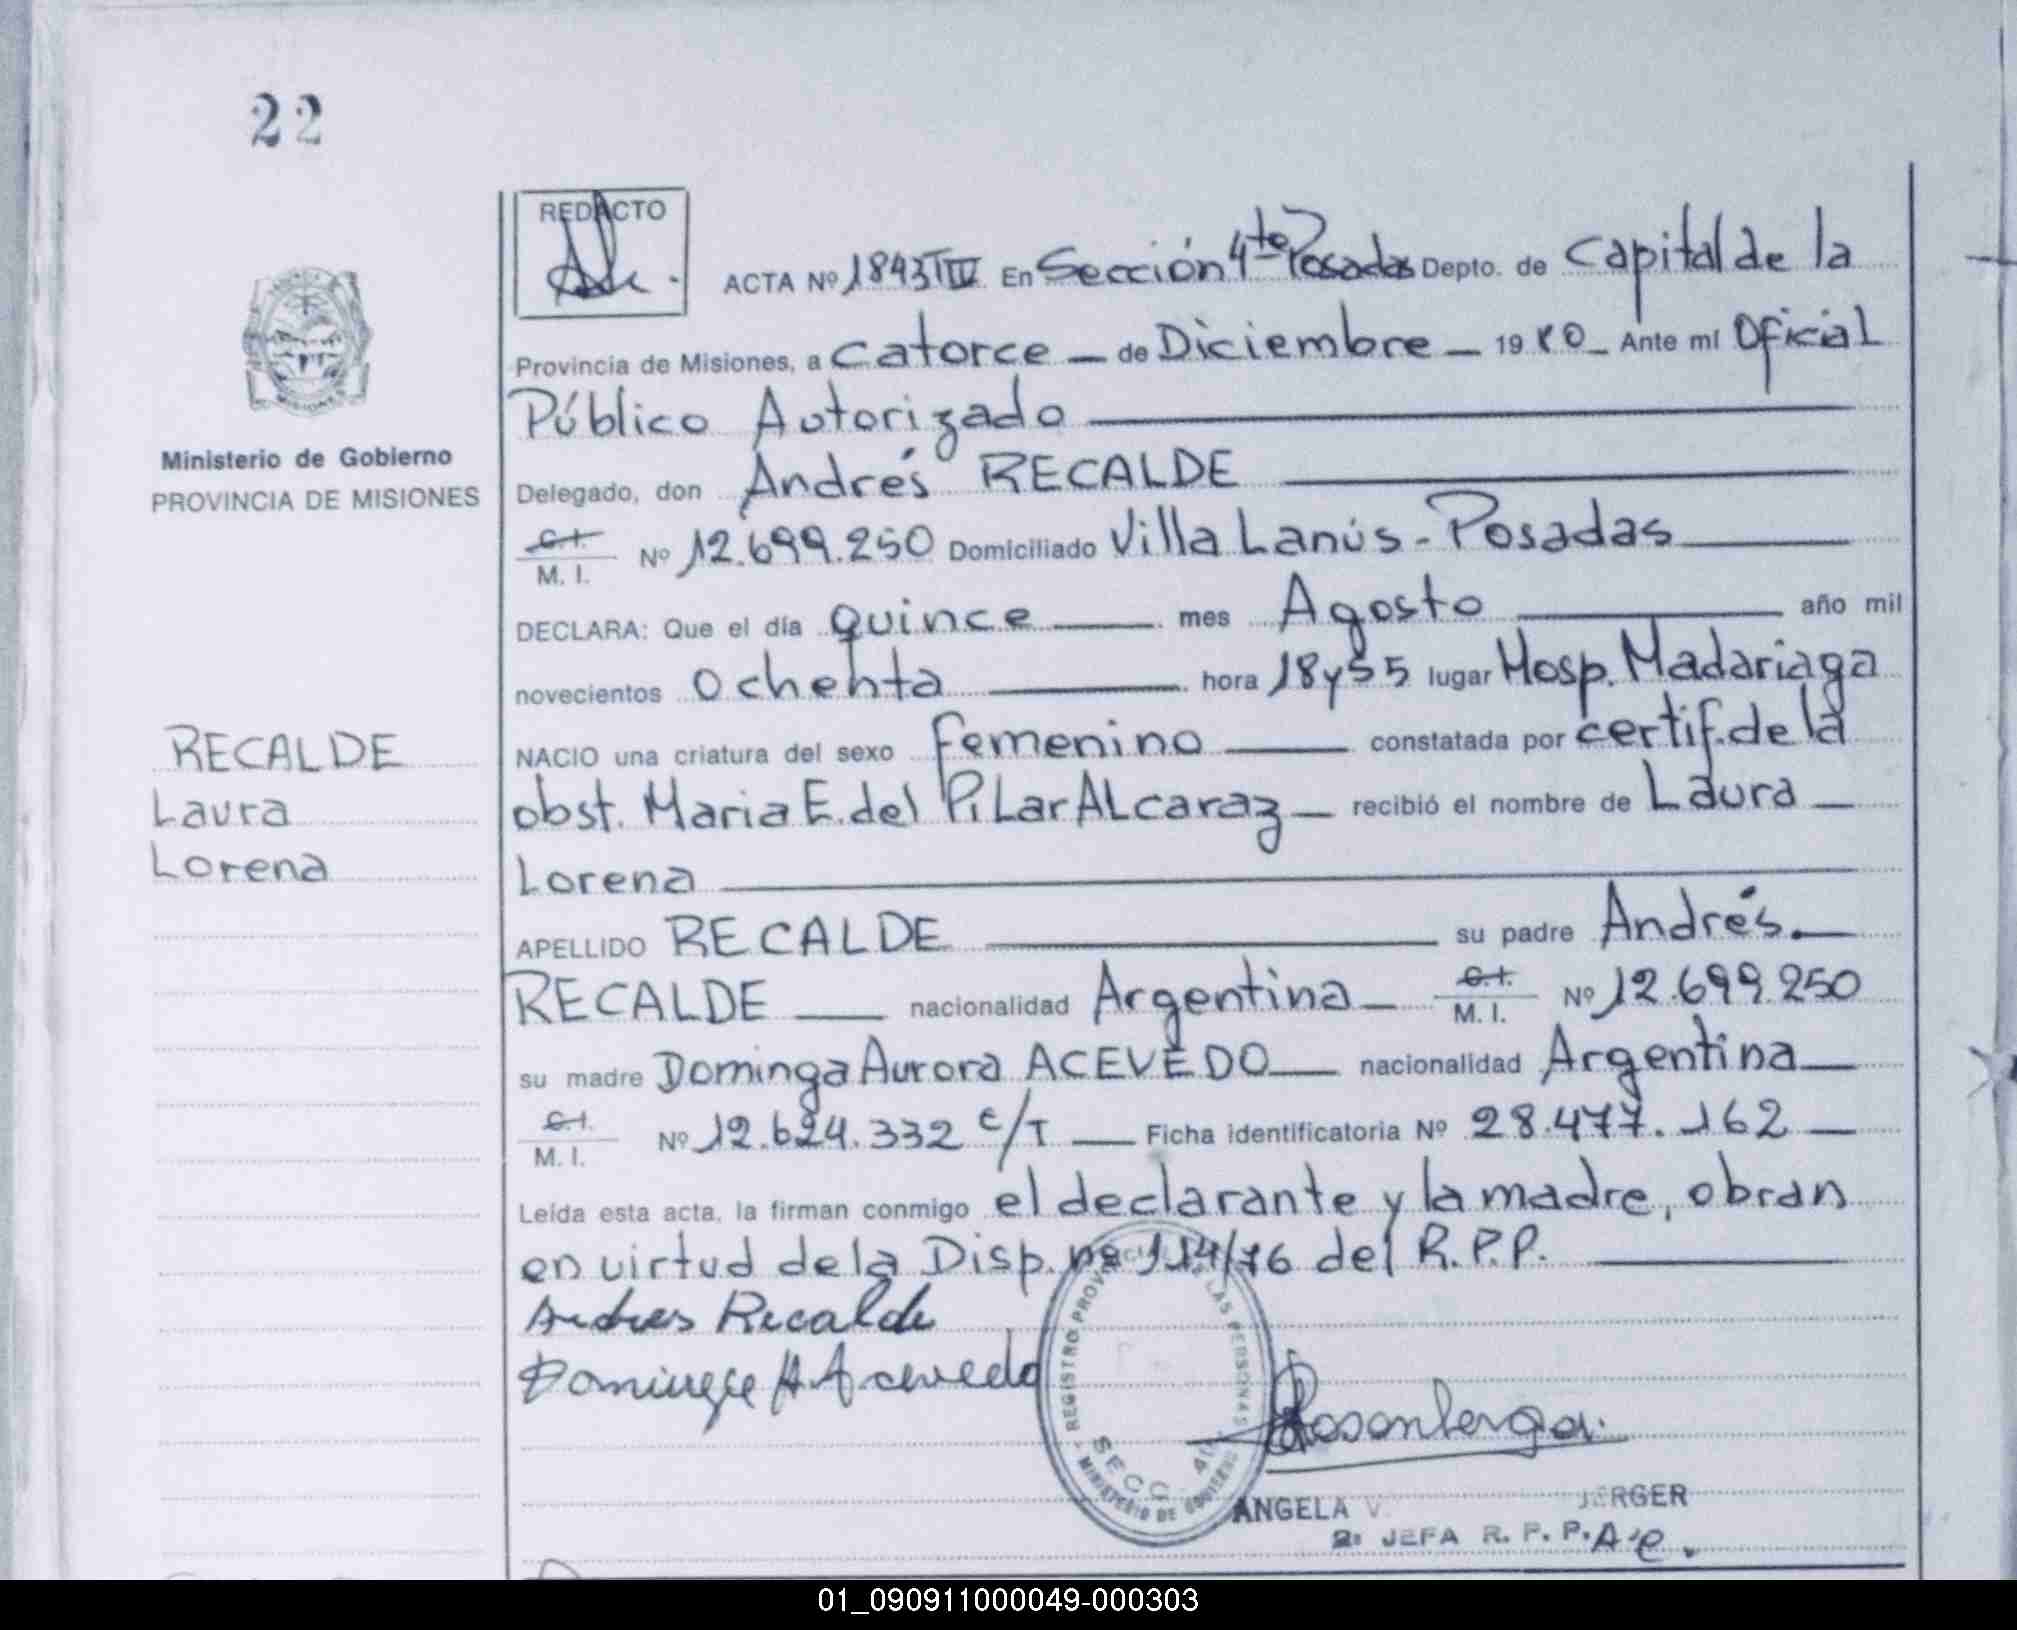 22
REDACTO
ACTA Nº 1843 TIII En Sección 4ta Posadas Depto. de Capital de la
Provincia de Misiones, a catorce — de Diciembre — 19 80 — Ante mí Oficial
Público Autorizado
Ministerio de Gobierno
PROVINCIA DE MISIONES
Delegado, don Andrés RECALDE
C.I. / M. I. Nº 12.699.250 Domiciliado Villa Lanús - Posadas
DECLARA: Que el día quince mes Agosto año mil
novecientos ochenta hora 18 y 55 lugar Hosp. Madariaga
NACIO una criatura del sexo femenino constatada por certif. de la
obst. Maria E. del Pilar ALcaraz — recibió el nombre de Laura —
Lorena
RECALDE
Laura
Lorena
APELLIDO RECALDE su padre Andrés. —
RECALDE — nacionalidad Argentina — C.I. / M. I. Nº 12.699.250
su madre Dominga Aurora ACEVEDO — nacionalidad Argentina —
C.I. / M. I. Nº 12.624.332 c/T — Ficha identificatoria Nº 28.477.162 —
Leída esta acta, la firman conmigo el declarante y la madre, obran
en virtud de la Disp. nº 114/76 del R.P.P.
Andres Recalde
Dominga A Acevedo
REGISTRO PROVINCIAL DE LAS PERSONAS
SECC. 4ta
MINISTERIO DE GOBIERNO
ANGELA V. JERGER
2ª JEFA R. P. P. A/C.
01_090911000049-000303